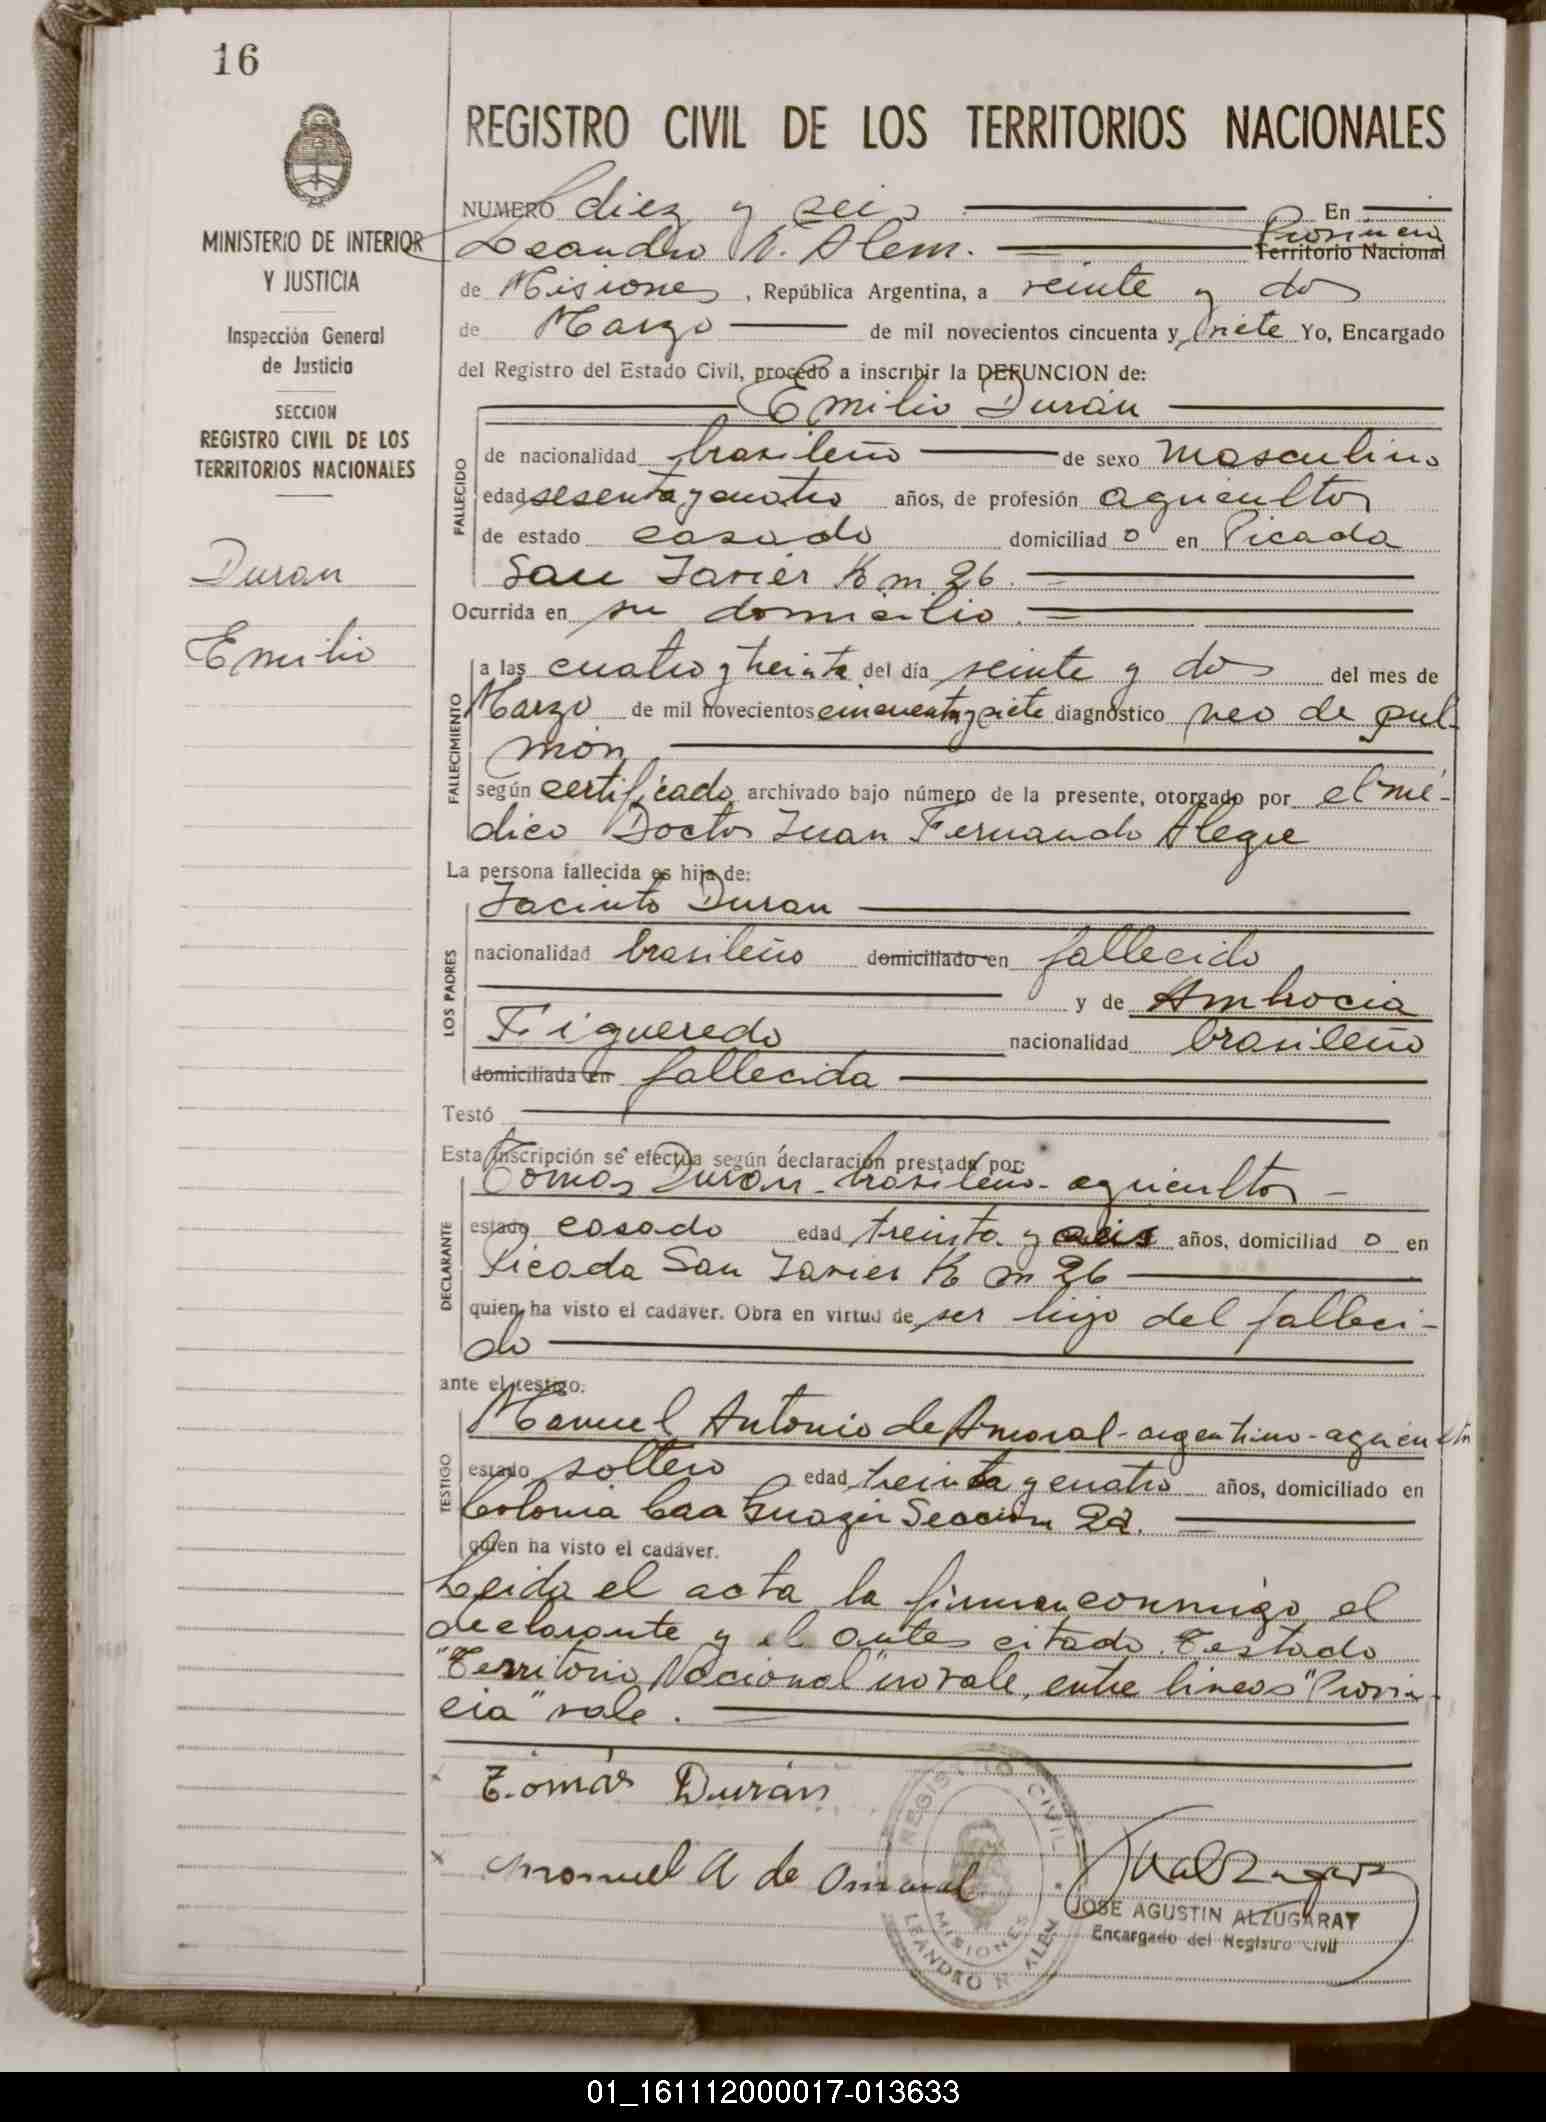 16
REGISTRO CIVIL DE LOS TERRITORIOS NACIONALES
MINISTERIO DE INTERIOR
Y JUSTICIA
Inspección General
de Justicia
SECCION
REGISTRO CIVIL DE LOS
TERRITORIOS NACIONALES
Duran
Emilio
NUMERO diez y seis En
Leandro N. Alem. Provincia
Territorio Nacional
de Misiones, República Argentina, a veinte y dos
de Marzo de mil novecientos cincuenta y siete Yo, Encargado
del Registro del Estado Civil, procedo a inscribir la DEFUNCION de:
Emilio Durán
FALLECIDO
de nacionalidad brasileño de sexo masculino
edad sesenta y cuatro años, de profesión agricultor
de estado casado domiciliado en Picada
San Javier Km 26.
Ocurrida en su domicilio.
FALLECIMIENTO
a las cuatro y treinta del día veinte y dos del mes de
Marzo de mil novecientos cincuenta y siete diagnóstico neo de pul-
món
según certificado archivado bajo número de la presente, otorgado por el mé-
dico Doctor Juan Fernando Alegre
La persona fallecida es hija de:
LOS PADRES
Jacinto Duran
nacionalidad brasileño domiciliado en fallecido
y de Ambrocia
Figueredo nacionalidad brasileño
domiciliada en fallecida
Testó
Esta inscripción se efectúa según declaración prestada por:
DECLARANTE
Tomas Duran - brasileño - agricultor -
estado casado edad treinta y seis años, domiciliado en
Picada San Javier Km 26
quien ha visto el cadáver. Obra en virtud de ser hijo del falleci-
do
ante el testigo:
TESTIGO
Manuel Antonio de Amaral - argentino - agricultor
estado soltero edad treinta y cuatro años, domiciliado en
Colonia Caa Guazú Sección 2a.
quien ha visto el cadáver.
Leida el acta la firman conmigo el
declarante y el antes citado. Testado
"Territorio Nacional" no vale, entre lineas "Provin-
cia" vale.
Tomás Durán
Manuel A de Amaral
REGISTRO CIVIL
MISIONES
LEANDRO N. ALEM
JOSE AGUSTIN ALZUGARAY
Encargado del Registro Civil
01_161112000017-013633